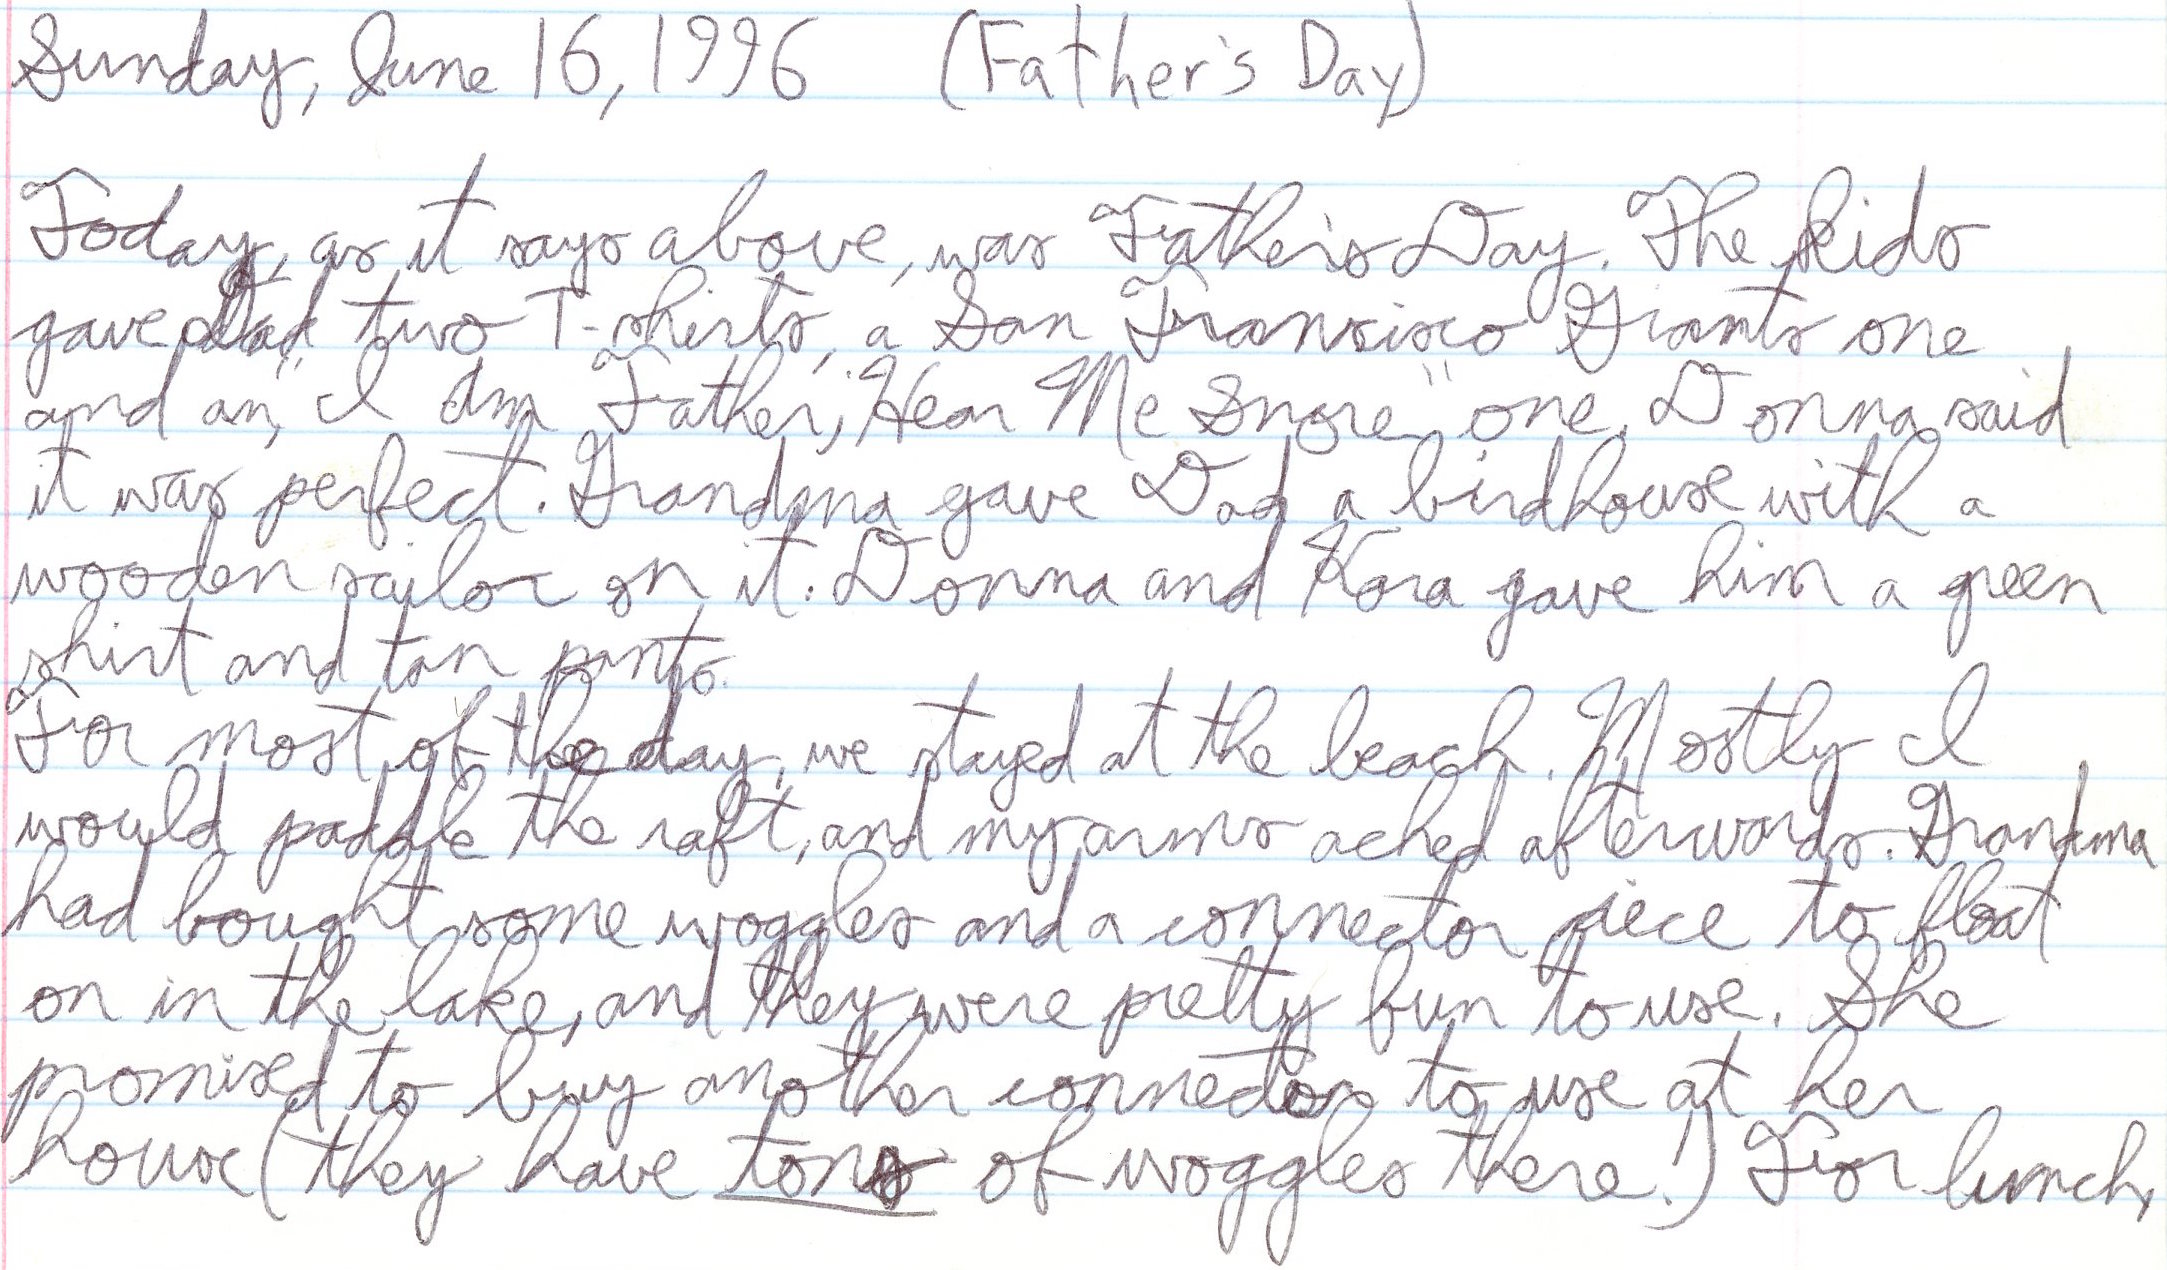 Sunday, June 16, 1996 (Father's Day)
Today, as it says above, was Father's Day. The kids
gave Dad two T-shirts, a San Fransisco Giants one
and an, "I Am Father, Hear Me Snore" one. Donna said
it was perfect. Grandma gave Dad a birdhouse with a
wooden sailor on it. Donna and Kara gave him a green
shirt and tan pants.
For most of the day, we stayed at the beach. Mostly I
would paddle the raft, and my arms ached afterwards. Grandma
had bought some woggles and a connector piece to float
on in the lake, and they were pretty fun to use. She
promised to buy another connector to use at her
house (they have tons of woggles there!) For lunch,